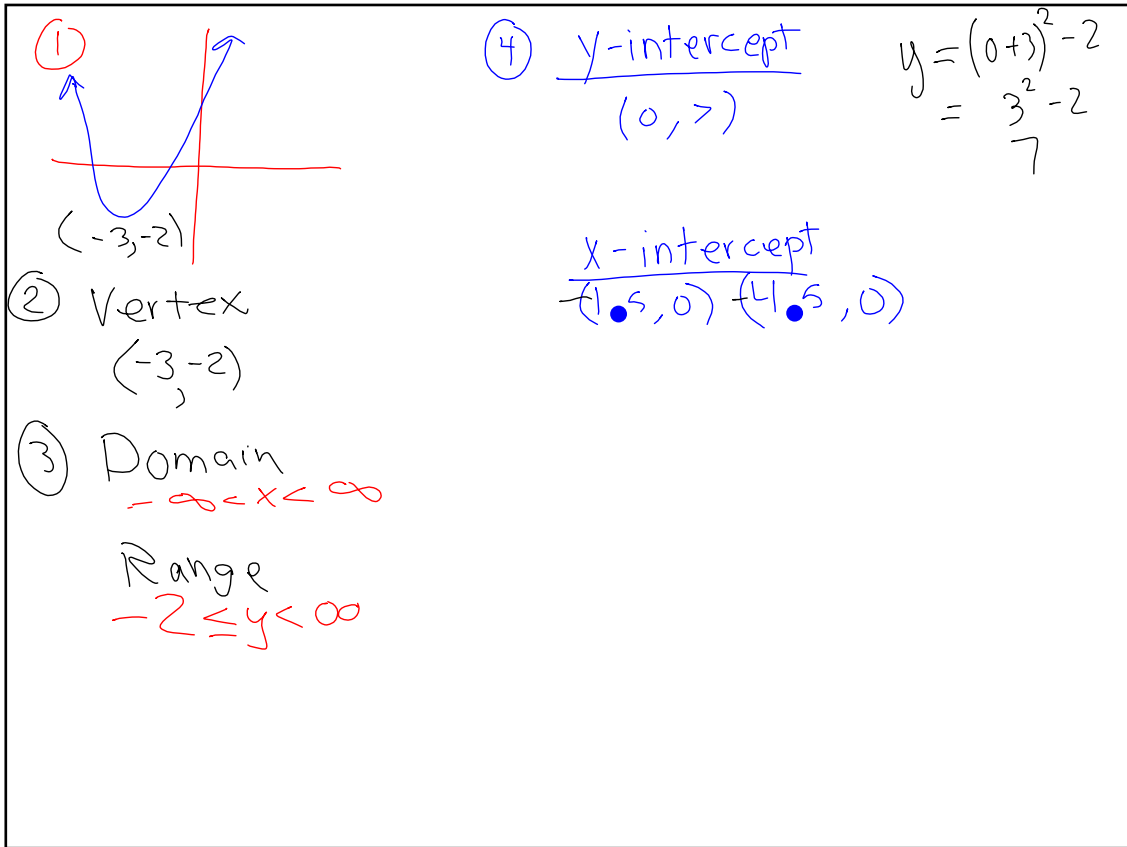 ①
(-3,-2)
② Vertex
(-3,-2)
③ Domain
-∞<x<∞
Range
-2≤y<∞
④ y-intercept
(0,>)
y=(0+3)²-2
= 3²-2
7
x-intercept
-(1.5,0) -(4.5,0)